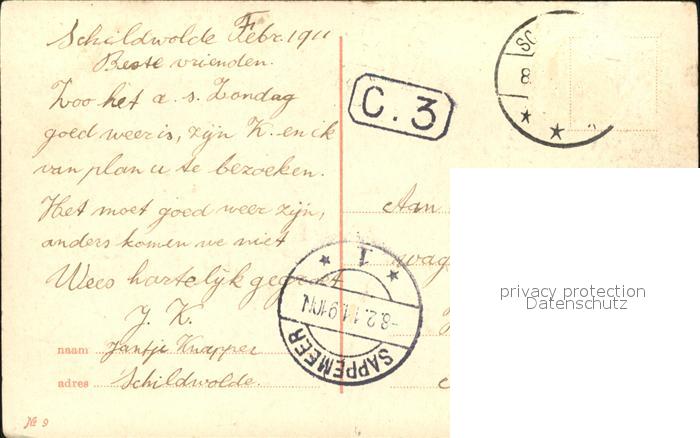 Schildwolde Febr. 1911
Beste vrienden.
Zoo het a. s. Zondag
goed weer is, zijn K. en ik
van plan u te bezoeken.
Het moet goed weer zijn,
anders komen we niet
Wees hartelijk gegroet
J. K.
naam Jantje Knapper
adres Schildwolde.
№ 9
C. 3
SC
8
Aan
wag
1
-8.2.11.9-10N
SAPPEMEER
privacy protection
Datenschutz